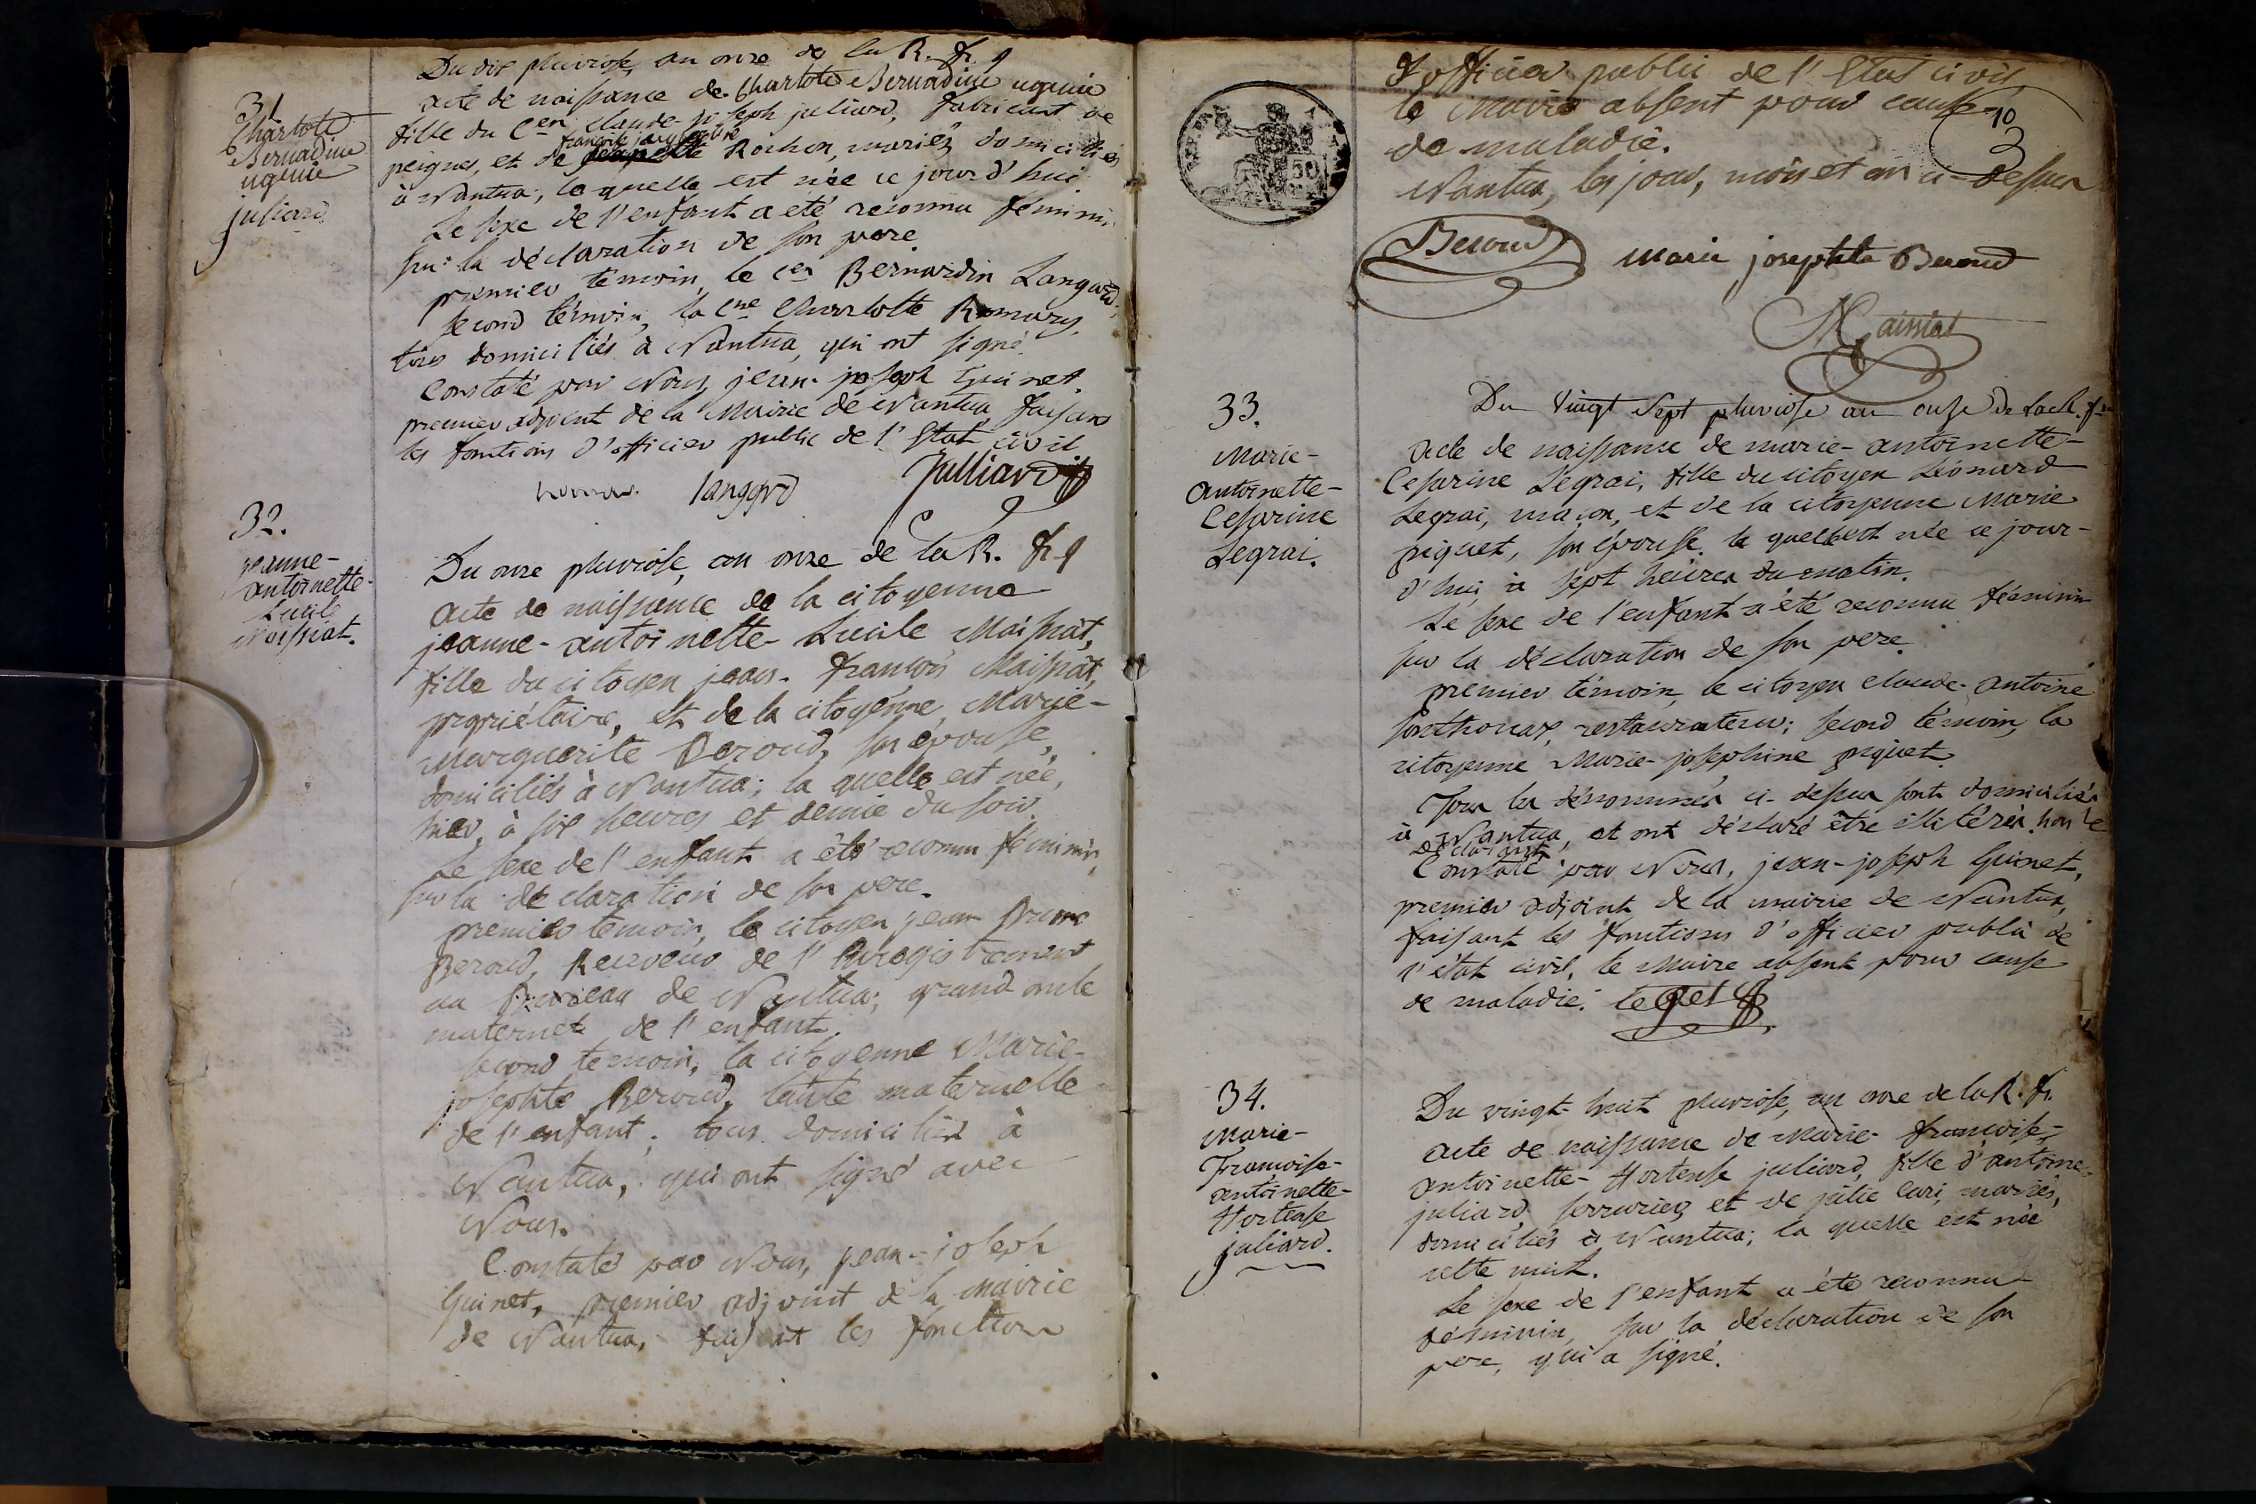 31
Charlote
Bernadine
ugenie
juliard
Du dix pluviose, an onze de la R. fr.
acte de naissance de Charlote Bernadine ugenie
fille du Cen Claude joseph juliard, fabricant de
peignes, et de françoise Rochon, mariés, domiciliés
à Nantua; la quelle est née ce jourd'hui
Le sexe de l'enfant a eté reconnu féminin,
sur la déclaration de son pere.
premier témoin, le cen Bernardin Langard,
second témoin, la Cne Charlotte
tous domiciliés à Nantua, qui ont signé.
Constaté par Nous, jean-joseph Guinet,
premier adjoint de la Mairie de Nantua, faisant
les fonctions d'officier public de l'Etat civil
langard Julliard
32.
jeanne-
antoinette-
Lucile
Maissiat.
Du onze pluviose, an onze de la R. fr.
Acte de naissance de la citoyenne
jeanne-antoinette-Lucile Maissiat,
fille du citoyen jean-françois Maissiat,
propriétaire, et de la citoyenne, Marie-
Marguerite Beroud, son épouse,
domiciliés à Nantua; la quelle est née,
hier, à six heures et demie du soir.
Le sexe de l'enfant a été reconnu féminin,
sur la déclaration de son pere.
premier témoin, le citoyen jean Bruno
Beroud, Receveur de l'Enregistrement
au Bureau de Nantua; grand oncle
maternel de l'enfant.
second temoin, la citoyenne Marie-
josephte Beroud, tante maternelle
de l'enfant; tous domiciliés à
Nantua, qui ont signé avec
Nous.
Constaté par Nous, jean-joseph
Guinet, premier adjoint de la Mairie
de Nantua, faisant les fonctions
10
3
d'officier public de l'Etat civil,
le Maire absent pour cause
de maladie.
Nantua, les jour, mois et an ci-dessus
Beroud Marie josephte Beroud
Maissiat
33.
Marie-
Antoinette-
Cesarine
Legrai.
Du Vingt Sept pluviose an onze de la R. fr.
Acte de naissance de marie-antoinette-
Cesarine Legrai, fille du citoyen Léonard
Legrai, maçon, et de la citoyenne Marie
piquet, son épouse. la quelle est née ce jour-
d'hui à sept heures du matin.
Le sexe de l'enfant a été reconnu féminin
sur la déclaration de son pere.
premier témoin, le citoyen claude-antoine
sonthonax, restaurateur; second témoin, la
citoyenne Marie-josephine piquet.
Tous les dénommés ci-dessus sont domiciliés
à Nantua, et ont déclaré être illitérés. hors le
déclarant
Constaté par Nous, jean-joseph Guinet,
premier adjoint de la mairie de Nantua,
faisant les fonctions d'officier public de
l'état civil, le Maire absent pour cause
de maladie.
34.
Marie-
Françoise-
antoinette-
Hortense
juliard.
Du vingt-huit pluviose, an onze de la R. fr.
acte de naissance de Marie-françoise-
antoinette-Hortense juliard, fille d'antoine-
juliard, serrurier, et de julie Cari, mariés,
domiciliés à Nantua; la quelle est née
cette nuit.
Le sexe de l'enfant a été reconnu
féminin, sur la déclaration de son
pere, qui a signé.